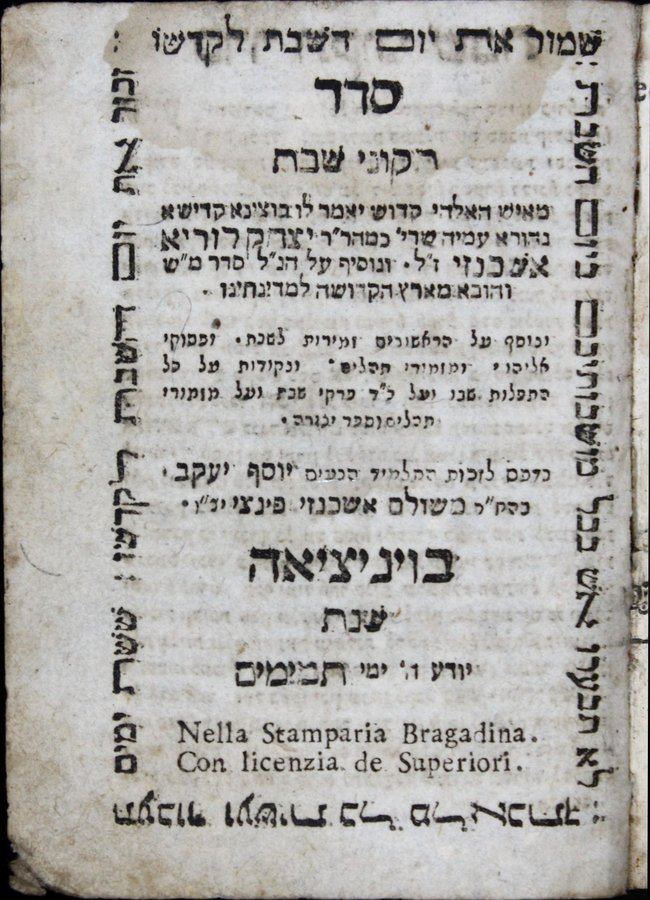 שמור את יום השבת לקדשו
זכור את יום השבת לקדשו ששת ימים
תעבוד ועשית כל מלאכתך
לא תבערו אש בכל מושבותיכם ביום השבת
סדר
תקוני שבת
מאיש האלהי קדוש יאמר לו בוצינא קדישא
נהורא עמיה שרי׳ כמהר״ר יצחק לוריא
אשכנזי ז״ל ׳ ונוסיף על הנ״ל סדר מ״ש
והובא מארץ הקדושה למדינתינו ׳
ונוסף על הראשונים זמירות לשבת ׳ ופסוקי
אליהו ׳ ומזמורי תהלים ׳ ונקודות על כל
התפלות שבו ועל כ״ד פרקי שבת ועל מזמורי
תהלים וספר יצירה ׳
נדפס לזכות התלמיד הנעים יוסף יעקב ׳
בהח״ר משולם אשכנזי פינצי יצ״ו ׳
בויניציאה
שנת
יודע ה׳ ימי תמימים
Nella Stamparia Bragadina.
Con licenzia de Superiori.